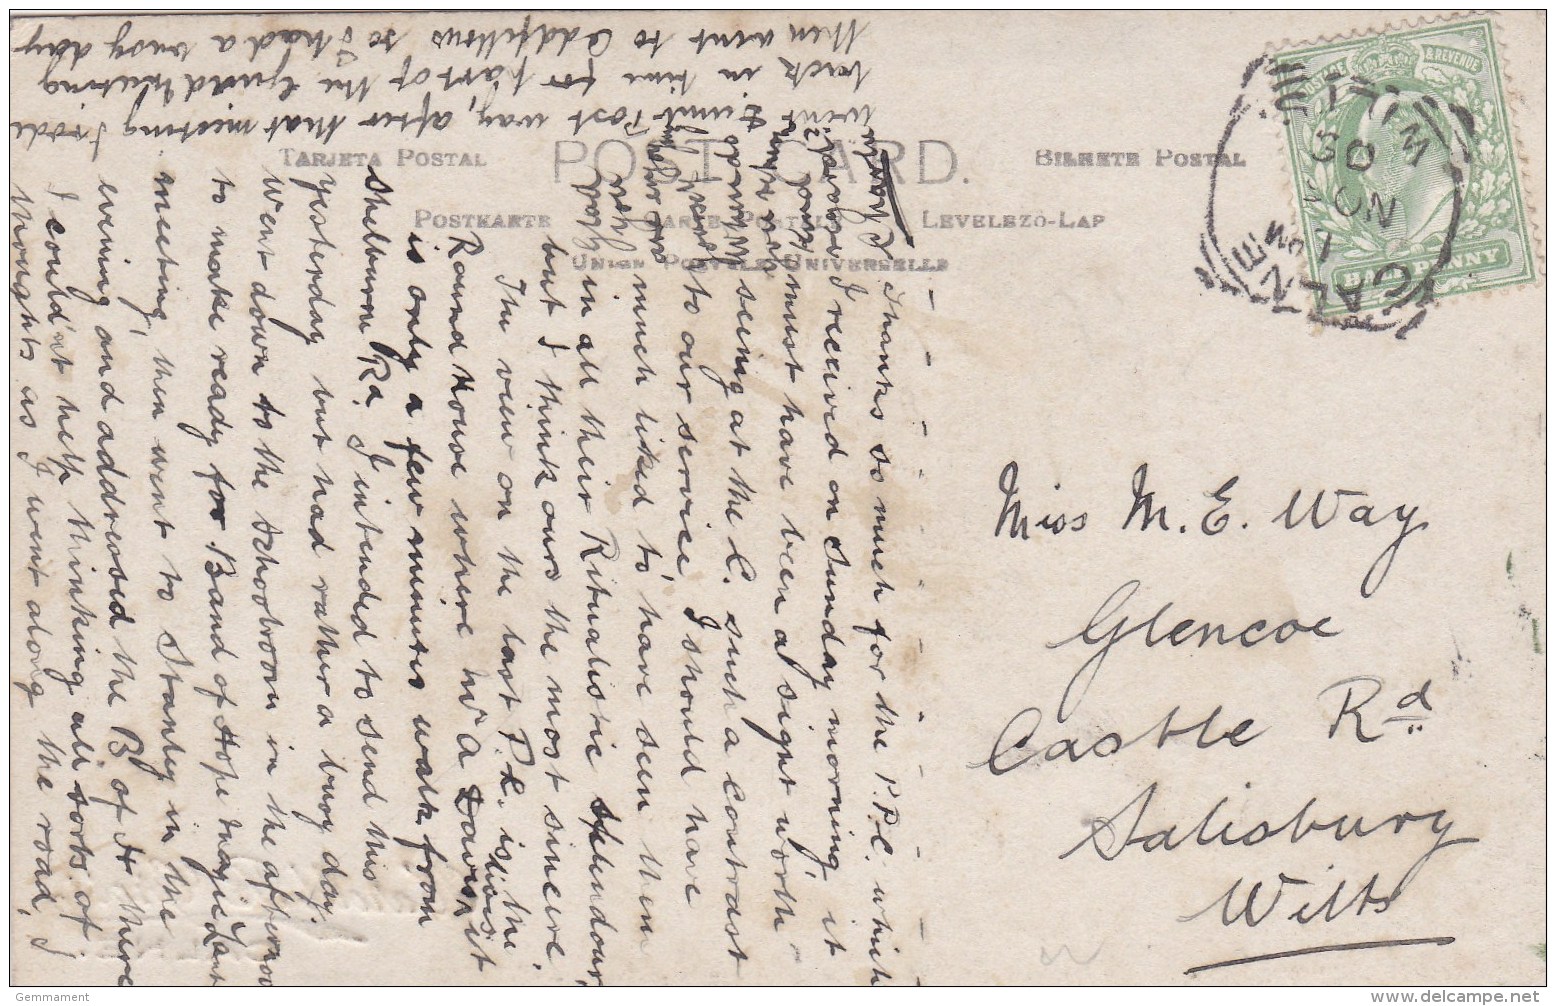 TARJETA POSTAL
POST CARD.
BILHETE POSTAL
POSTKARTE
CARTE POSTALE
LEVELEZŐ-LAP
UNION POSTALE UNIVERSELLE
POSTAGE & REVENUE
HALF PENNY
CALNE
Miss M. E. Way
Glencoe
Castle Rd
Salisbury
Wilts
Thanks so much for the P.P.C. which
I received on Sunday morning, it
must have been a sight worth
seeing at the C. such a contrast
to our service I should have
much liked to have seen them
in all their Ritualistic splendour,
but I think ours the most sincere.
The view on the last P.C. is the
Round House where Mr A Davis lives it
is only a few minutes walk from
Shelburn Rd. I intended to send this
yesterday but had rather a busy day.
Went down to the Schoolroom in the afternoon
to make ready for Band of Hope Magic Lant
meeting, then went to Stanley in the
evening and addressed the B of H there
I could'nt help thinking all sorts of
thoughts as I went along the road, I
went
way, after that meeting I rode
back in time for part of the Guild Meeting
then went to Oddfellows so I had a busy day
Gemmament
delcampe.net